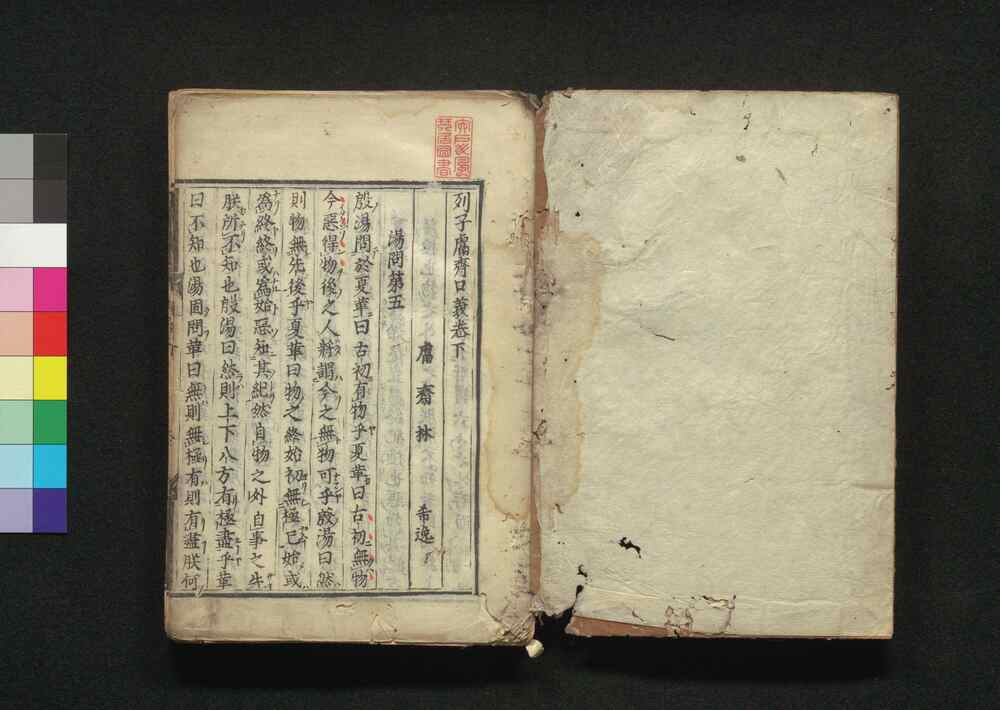 列子鬳齋口義卷下
鬳齋林希逸
湯問第五
殷湯問於夏革曰古初有物乎夏革曰古初無物
今惡得物後之人將謂今之無物可乎殷湯曰然
則物無先後乎夏革曰物之終始初無極已始或
為終終或為始惡知其紀然自物之外自事之先
朕所不知也殷湯曰然則上下八方有極盡乎革
曰不知也湯固問革曰無則無極有則有盡朕何